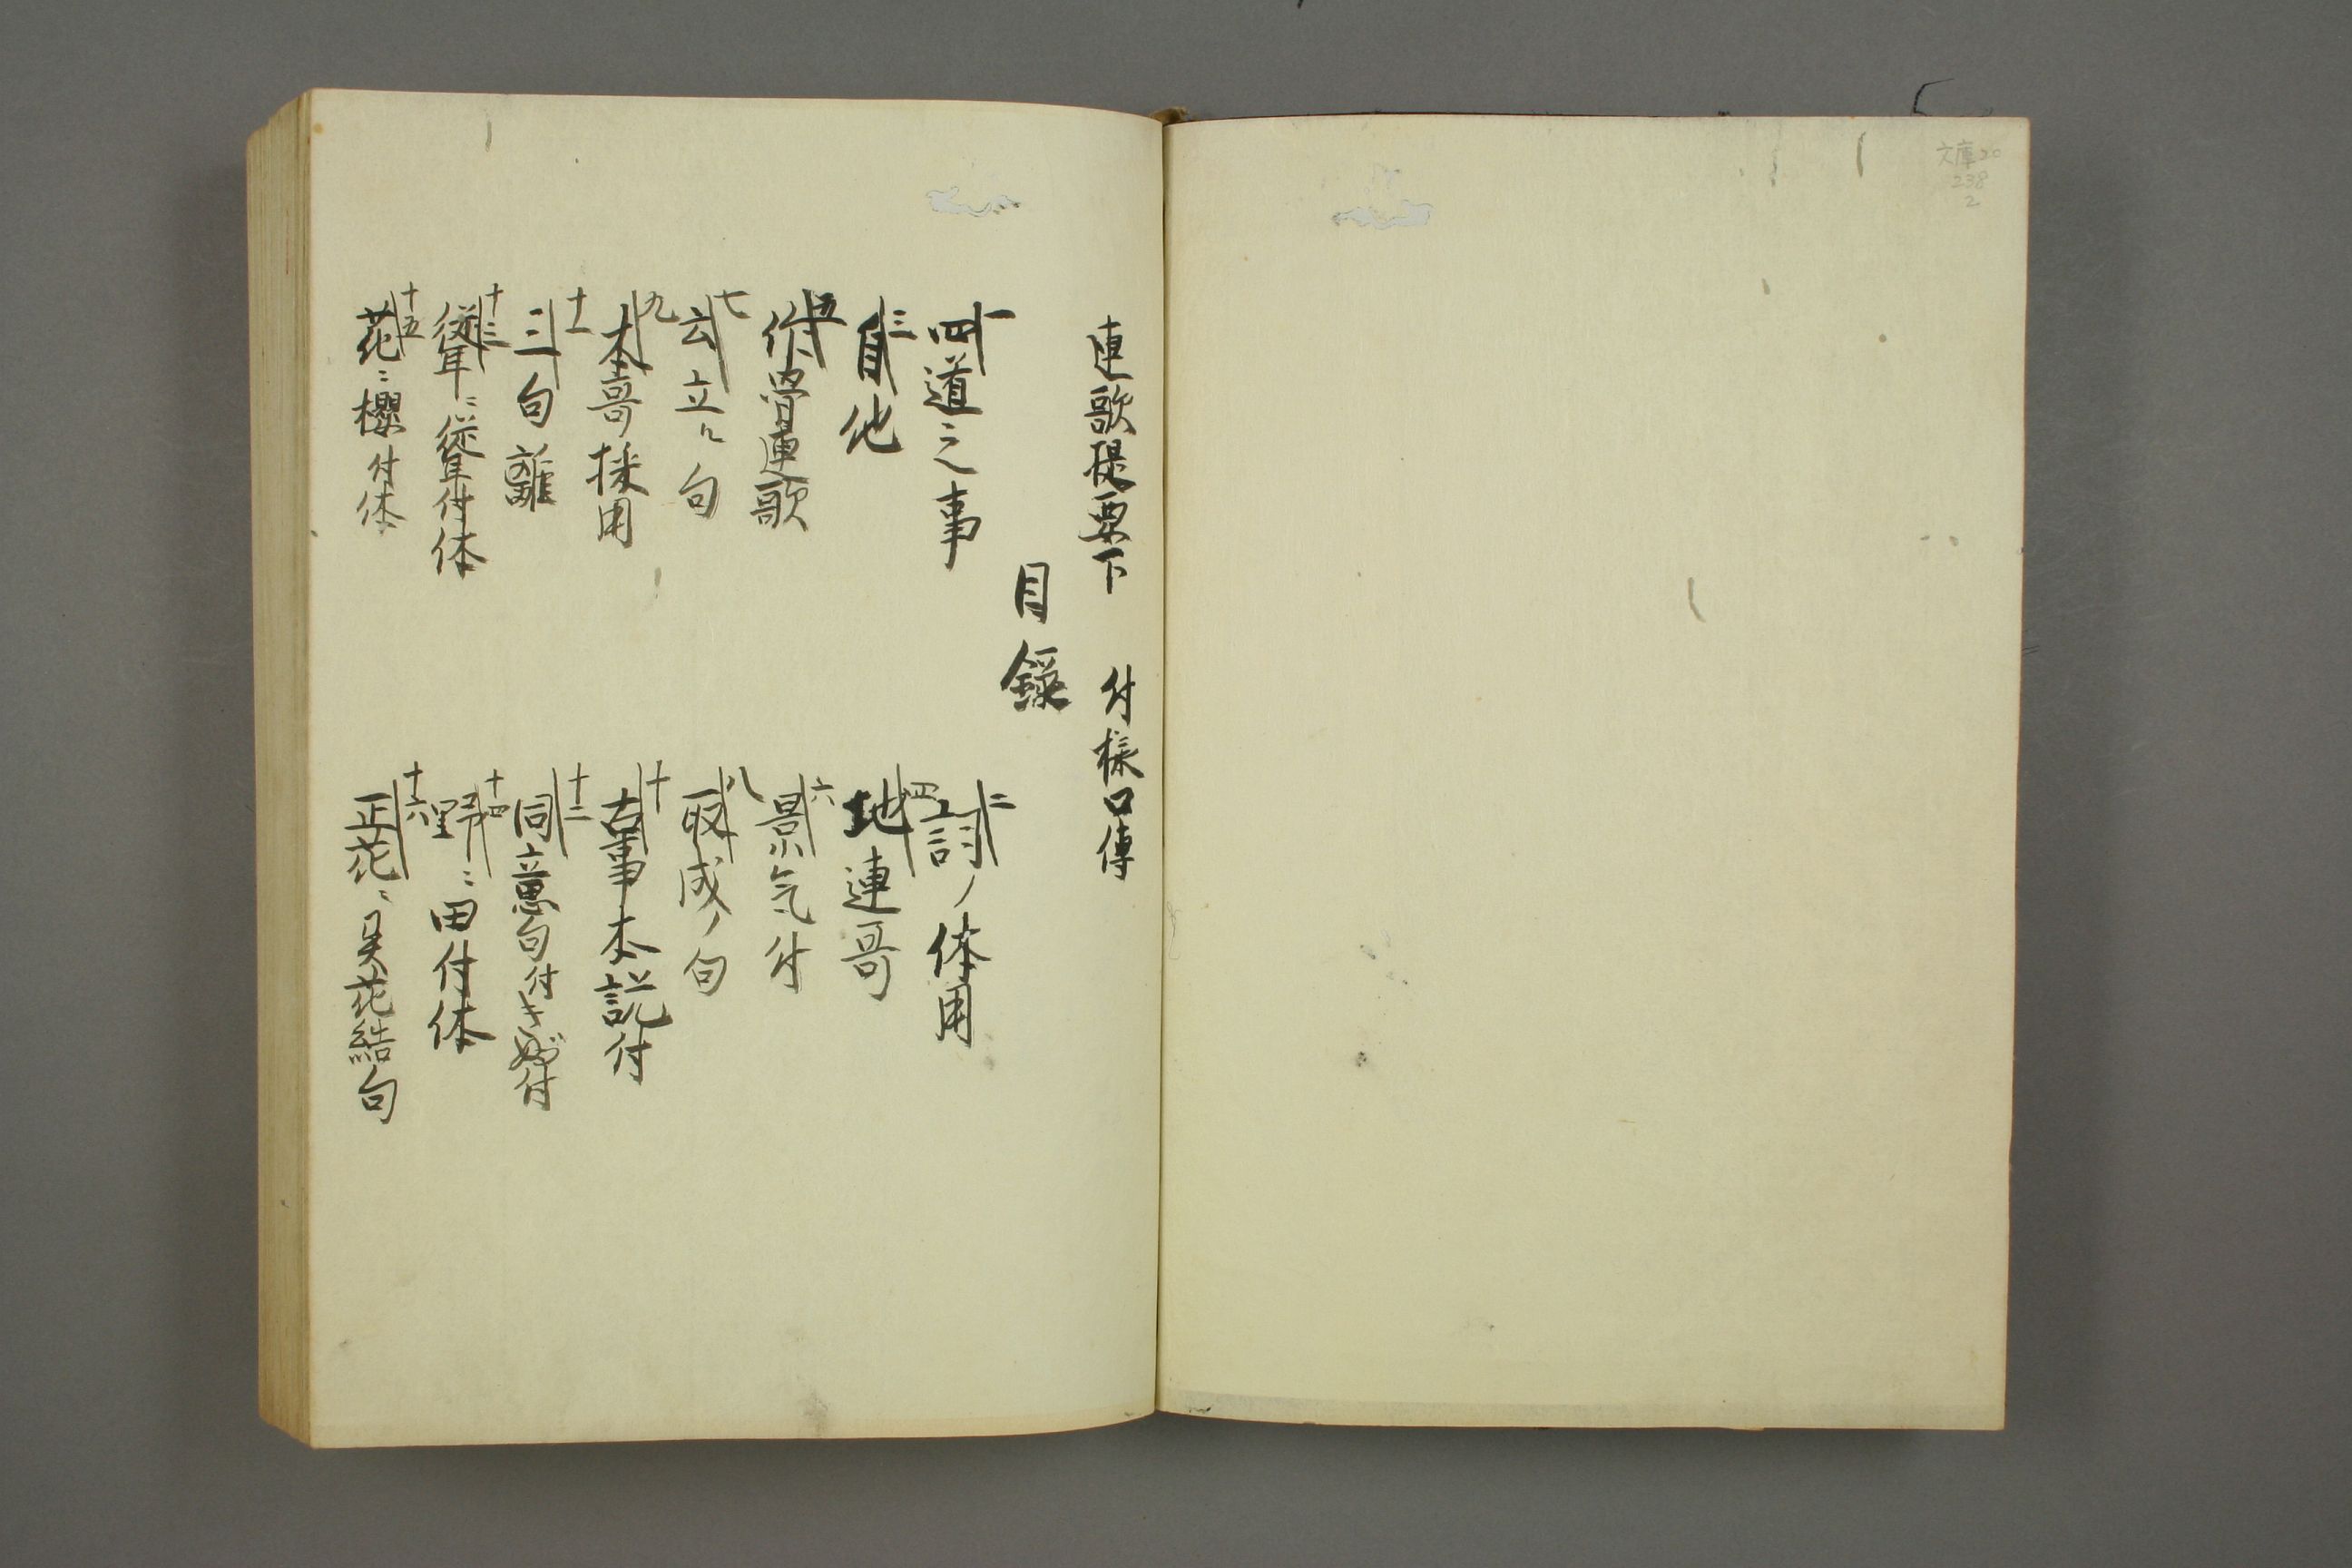 文庫20
238
2
連歌提要下 付様口傳
目録
一 四道之事
二 詞ノ体用
三 自他
四 地連哥
五 作 連歌
六 景気付
七 云立ル句
八 取成ノ句
九 本哥採用
十 古事本説付
十一 三句離
十二 同意句付
十三 聳ニ聳付体
十四 野ニ田付体
十五 花ニ櫻付体
十六 正花ニ 花結句